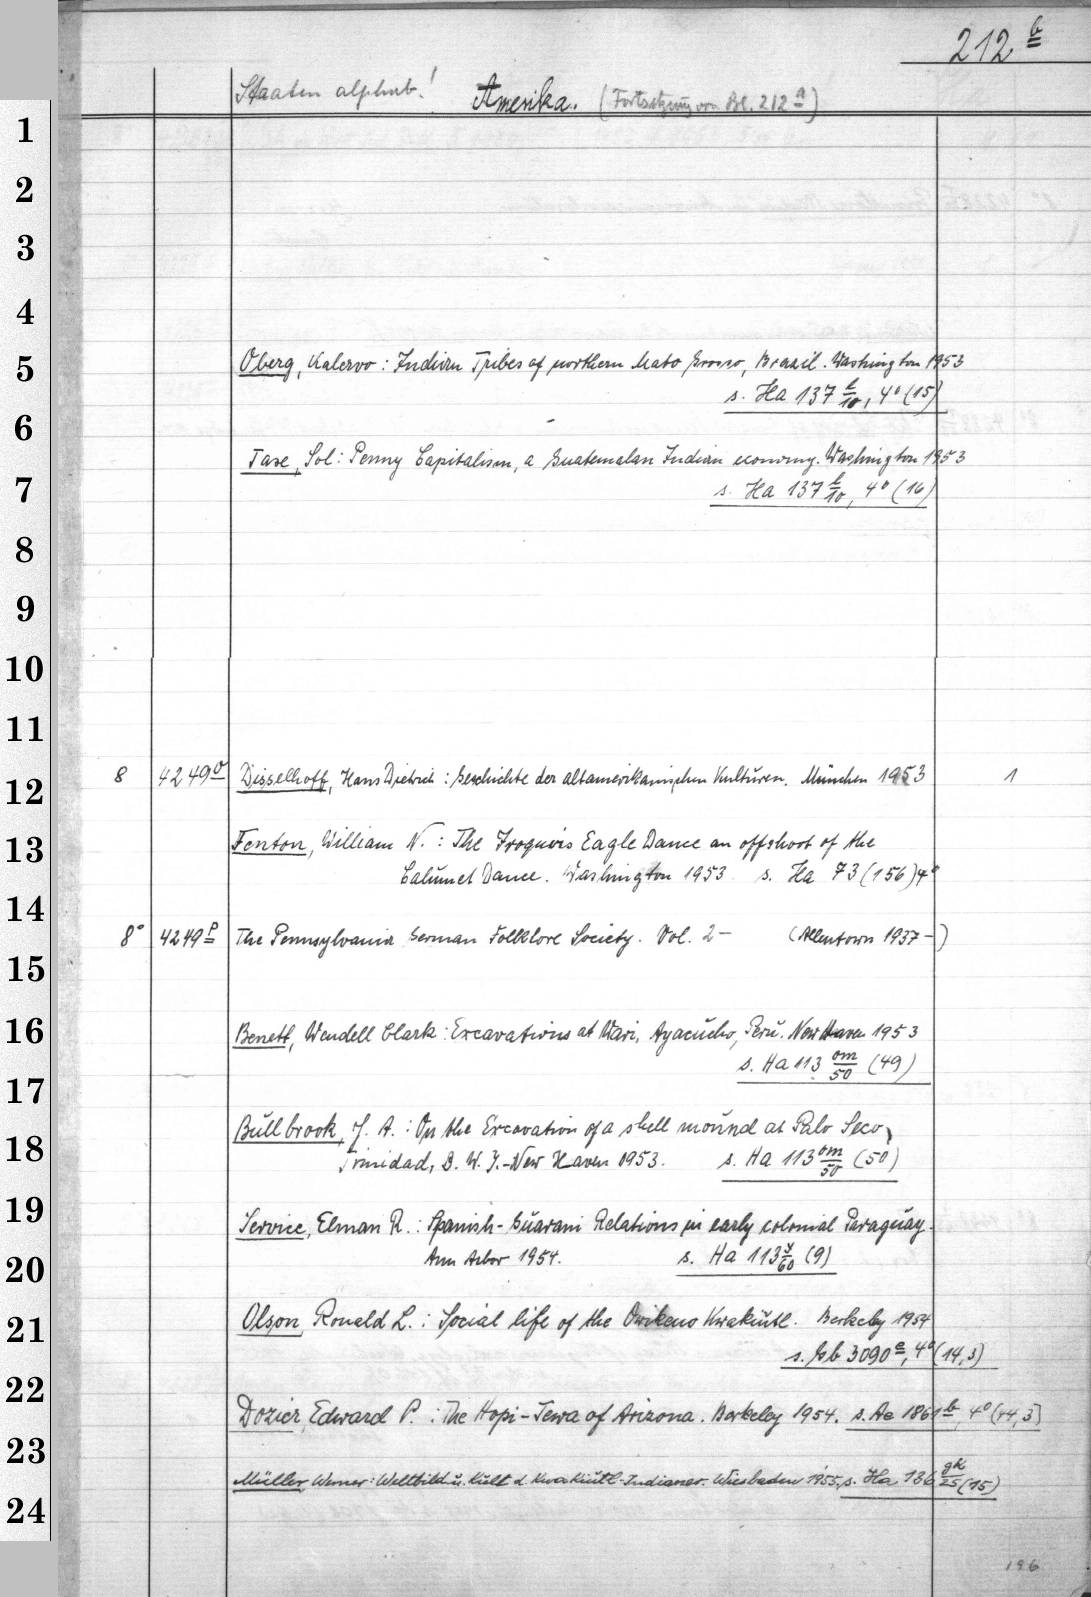 212 b
Staaten alphab! Amerika. (Fortsetzung von Bl. 212 a)
1
2
3
4
5 Oberg, Kalervo: Indian Tribes of northern Mato Grosso, Brazil. Washington 1953
s. Ha 137 l/10, 4° (15)
6
Tax, Sol: Penny Capitalism, a Guatemalan Indian economy. Washington 1953
7 s. Ha 137 l/10, 4° (16)
8
9
10
11
12 8 4249 o Disselhoff, Hans Dietrich: Geschichte der altamerikanischen Kulturen. München 1953 1
13 Fenton, William N.: The Iroquois Eagle Dance an offshoot of the
Calumet Dance. Washington 1953 s. Ha 73 (156) 4°
14
8° 4249 p The Pennsylvania German Folklore Society. Vol. 2- (Allentown 1937-)
15
16 Benett, Wendell Clark: Excavations at Wari, Ayacucho, Peru. New Haven 1953
s. Ha 113 om/50 (49)
17
18 Bullbrook, J. A.: On the Excavation of a shell mound at Palo Seco,
Trinidad, B. W. I.-New Haven 1953. s. Ha 113 om/50 (50)
19 Service, Elman R.: Spanish-Guarani Relations in early colonial Paraguay.
20 Ann Arbor 1954. s. Ha 113 y/60 (9)
21 Olson, Ronald L.: Social life of the Owikeno Kwakiutl. Berkeley 1954
s. Gb 3090 e, 4° (14,3)
22 Dozier, Edward P.: The Hopi-Tewa of Arizona. Berkeley 1954. s. Ae 1861 b, 4° (44,3)
23
Müller, Werner: Weltbild u. Kult d. Kwakiutl-Indianer. Wiesbaden 1955. s. Ha 136 gk/25 (15)
24
196